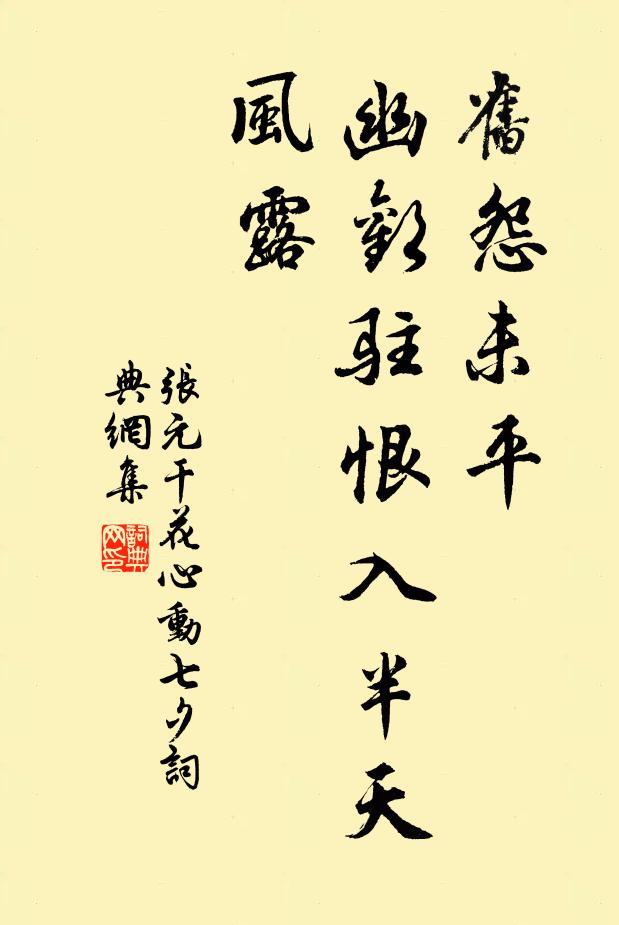 舊怨未平
幽歡駐恨入半天
風露
張元干花心動七夕詞
典網集
詞典
网印